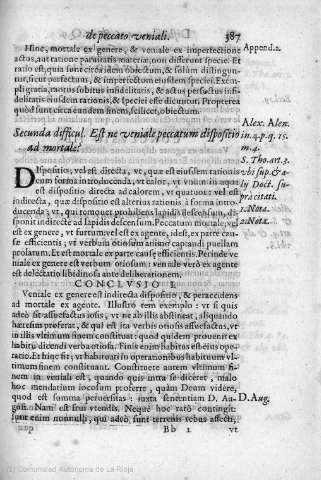 de peccato veniali. 387
Hinc, mortale ex genere, & veniale ex imperfectione Append.2.
actus, aut ratione paruitatis materiæ, non differunt specie. Et
ratio est, quia sunt circa idem obiectum, & solum distinguntur, sicut perfectus, & imperfectum eiusdem speciei. Exempli gratia, motus subitus infidelitatis, & actus perfectus infidelitatis eiusdem rationis, & speciei esse dicuntur. Propterea
quòd sunt circa eundem finem, scilicet, obiectum.
Alex. Alen.
Secunda difficul. Est ne veniale peccatum dispositio in.4.p.q.15.
ad mortale? m.4.
S. Tho. art.3.
Dispositio, vel est directa, vt, quæ est eiusdem rationis vbi sup. & a-
cum forma introducenda, vt calor, vt vnum in aqua lij Doct. su-
est dispositio directa ad calorem, vt quatuor: vel est præ citati.
indirecta, quæ dispositio est alterius rationis à forma intro- 1. Nota.
ducenda: vt, qui remouet prohibens lapidis descensum, dis- 2. Nota.
ponit indirectè ad lapidis descensum. Peccatum mortale, vel
est ex genere, vt furtum, vel est ex agente, idest, ex parte causæ efficientis, vt verbum otiosum animo captandi puellam
prolatum. Et est mortale ex parte causæ efficientis. Perinde veniale ex genere est verbum otiosum: veniale verò ex agente
est delectatio libidinosa ante deliberationem.
CONCLVSIO I.
Veniale ex genere est indirecta dispositio, & per accidens
ad mortale ex agente. Illustro rem exemplo: vt si quis
adeò sit assuefactus iosis, vt ne ab illis abstineat, aliquando
hæresim proferat, & qui est ita verbis otiosis assuefactus, vt
in illis vltimum finem constituat: quod quidem prouenit ex
habitu dicendi verba otiosa. Finis enim habitus est eius operatio. Et hinc fit, vt habituati in operationibus habituum vltimum finem constituant. Constituere autem vltimum finem in veniali est, quando quis intra se diceret, malo
hoc mendatium iocosum proferre, quàm Deum videre,
quod est summa peruersitas: iuxta sententiam D. Au- D. Aug.
gust. Nam est frui vtendis. Neque hoc rarò contingit:
sunt enim nonnulli, qui adeò sunt terrenis rebus affecti,
Bb 2 vt
(c) Comunidad Autónoma de La Rioja